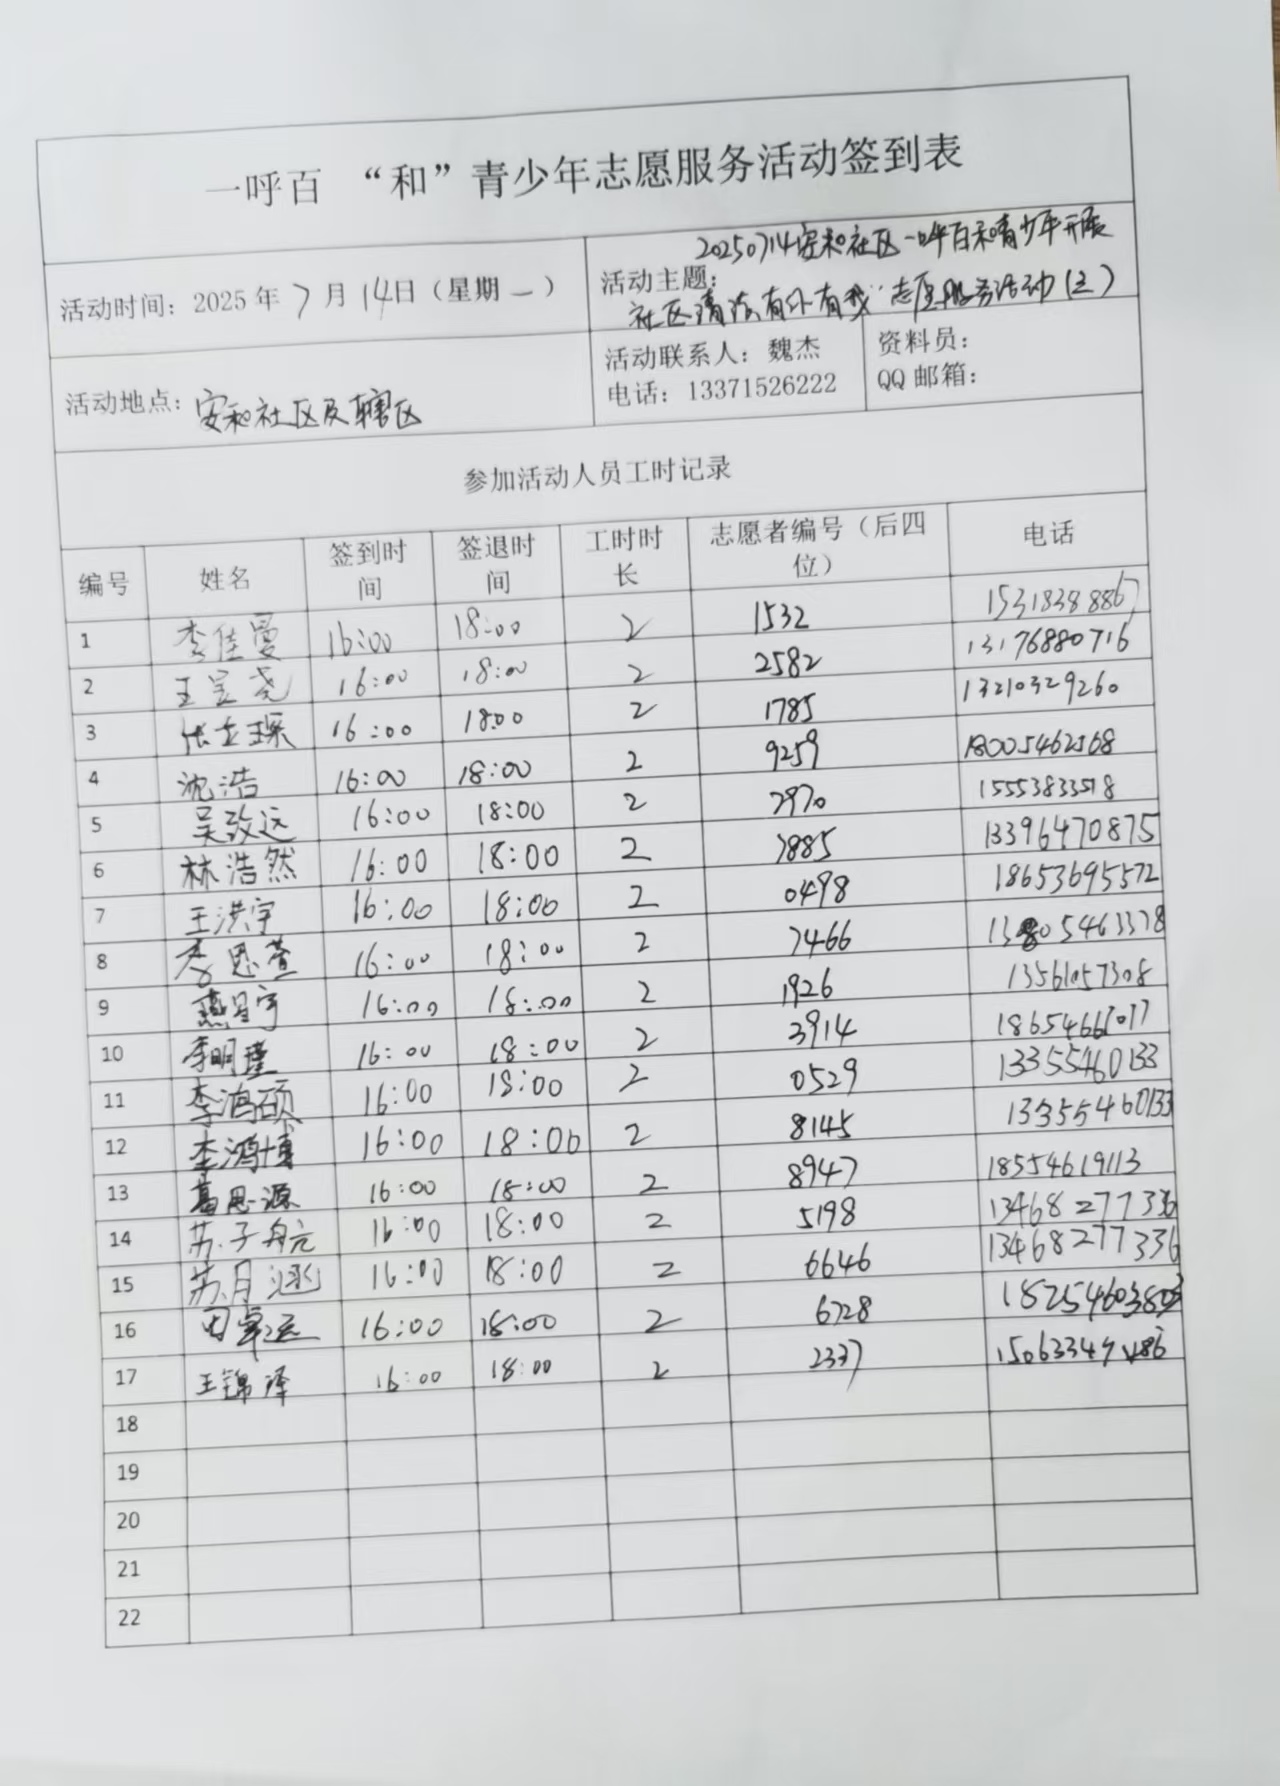 一呼百 “和”青少年志愿服务活动签到表
活动时间：2025年7月14日（星期一）
活动主题：20250714安和社区一呼百和青少年开展
社区清洁有你有我”志愿服务活动（三）
活动地点：安和社区及辖区
活动联系人：魏杰
电话：13371526222
资料员：
QQ邮箱：
参加活动人员工时记录
编号 姓名 签到时间 签退时间 工时时长 志愿者编号（后四位） 电话
1 李佳曼 16:00 18:00 2 1532 15318388867
2 王昱尧 16:00 18:00 2 2582 13176880716
3 张立琛 16:00 18:00 2 1785 13210329260
4 沈浩 16:00 18:00 2 9259 18005462568
5 吴致远 16:00 18:00 2 2970
6 林浩然 16:00 18:00 2 7885 13396470875
7 王洪宇 16:00 18:00 2 0498 18653695572
8 李思萱 16:00 18:00 2 7466
9 燕星宇 16:00 18:00 2 1926 13561057308
10 李明瑾 16:00 18:00 2 3914
11 李鸿硕 16:00 18:00 2 0529 13355460133
12 李鸿博 16:00 18:00 2 8145 13355460133
13 葛思源 16:00 18:00 2 8947 18554619113
14 苏子航 16:00 18:00 2 5198 13468277336
15 苏月涵 16:00 18:00 2 6646 13468277336
16 16:00 18:00 2 6728
17 王锦泽 16:00 18:00 2 2337
18
19
20
21
22